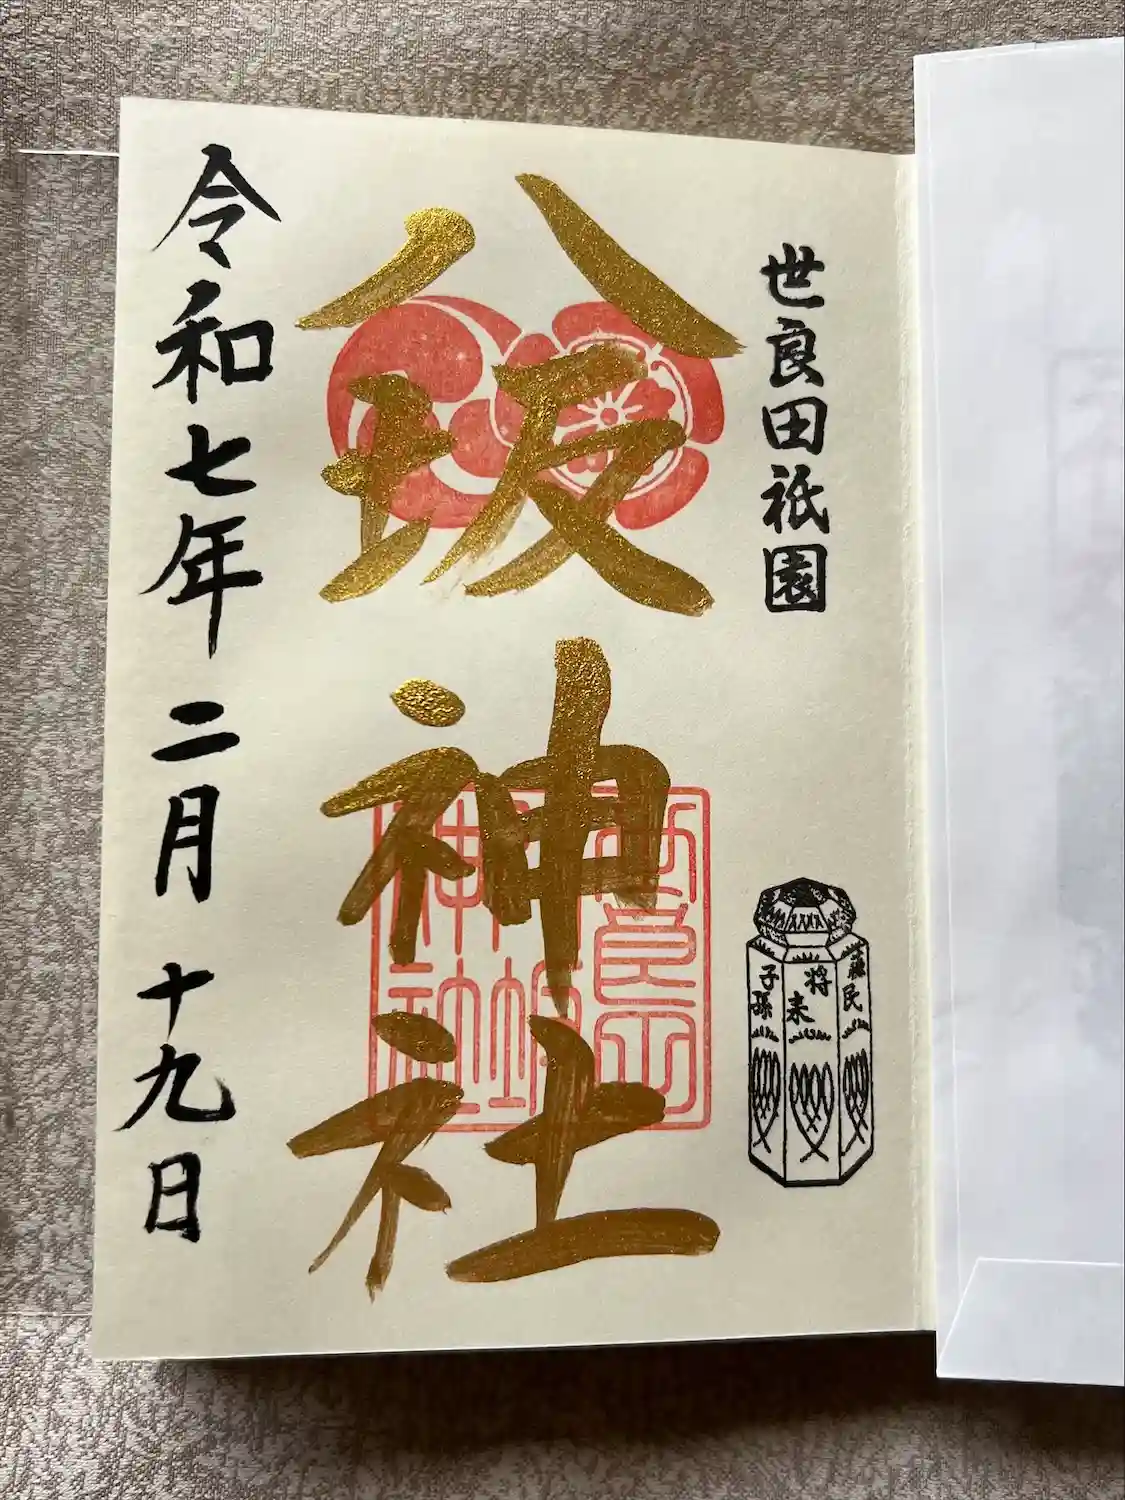 世良田祇園
蘇民
将来
子孫
八坂神社
世良田
八坂
神社
令和七年二月十九日